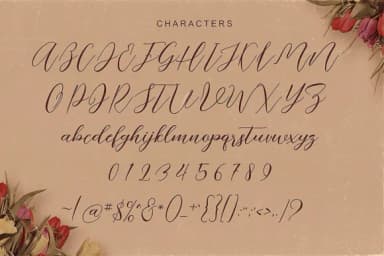 CHARACTERS
ABCDEFGHIJKLMN
OPQRSTUVWXYZ
abcdefghijklmnopqrstuvwxyz
0123456789
~!@#$%^&*()_-+{}[]:;"'<>,./?